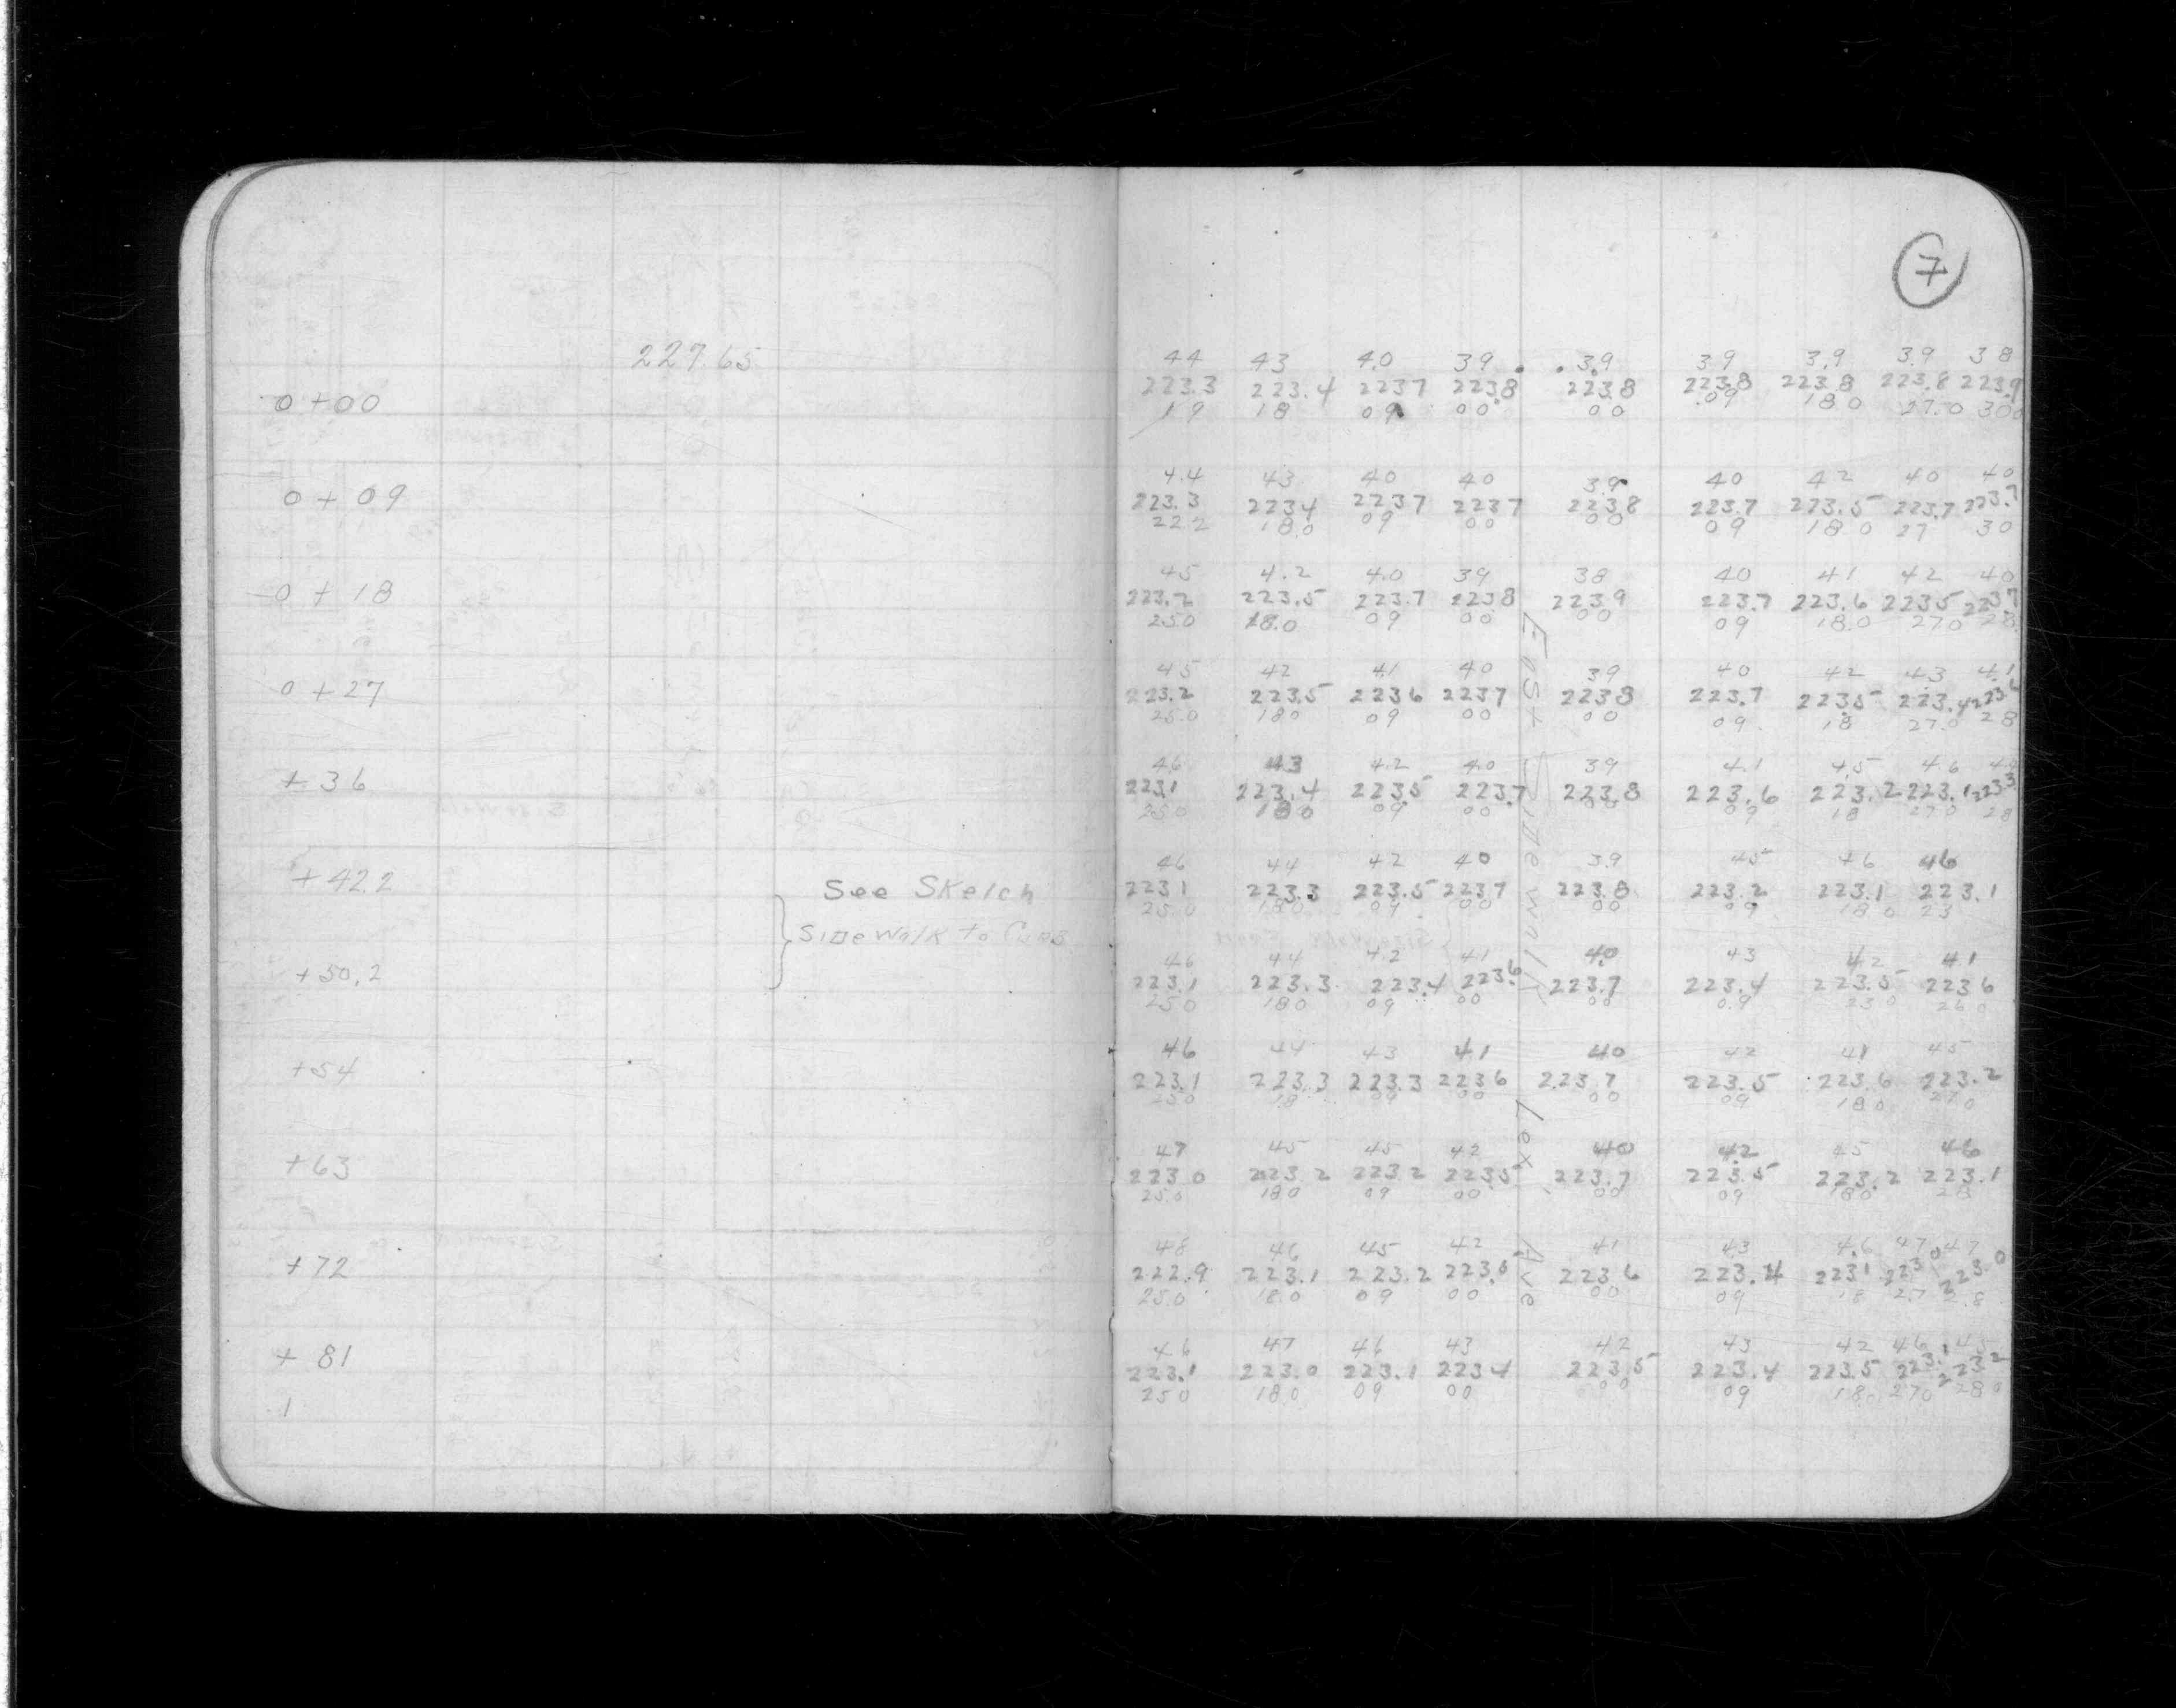 7
227.65
44 43 4.0 39 3.9 39 3.9 39 38
0+00 223.3 223.4 2237 2238 223.8 223.8 223.8 223.8 223.9
19 18 09 00 00 09 180 27.0 300
4.4 43 40 40 39 40 42 40 40
0+09 223.3 2234 2237 2237 223.8 223.7 223.5 223.7 223.7
222 18.0 09 00 00 09 180 27 30
45 4.2 4.0 39 38 40 41 42 40
0+18 223.2 223.5 223.7 2238 2239 223.7 223.6 2235 2237
25.0 18.0 09 00 00 09 18.0 270 28
45 42 41 40 39 40 42 43 41
0+27 223.2 223.5 2236 2237 2238 223.7 2235 223.4 223.6
25.0 180 09 00 00 09 18 27.0 28
46 43 4.2 4.0 39 4.1 4.5 4.6
+36 223.1 223.4 2235 223.7 223.8 223.6 223.2 223.1 2233
25.0 180 09 00 00 09 18 270 28
46 44 42 40 39 45 46 46
+42.2 2231 223.3 223.5 2237 223.8 223.2 223.1 223.1
25.0 180 09 00 00 09 18.0 23
See Sketch
Sidewalk to Curb
46 44 4.2 41 40 43 42 41
+50.2 223.1 223.3 223.4 223.6 223.7 223.4 223.5 2236
250 180 09 00 00 0.9 230 260
46 44 43 41 40 42 41 45
+54 223.1 223.3 223.3 2236 223.7 223.5 223.6 223.2
25.0 18 09 00 00 09 180 270
47 45 45 42 40 42 45 46
+63 223.0 223.2 2232 2235 223.7 223.5 223.2 223.1
25.0 180 09 00 00 09 180 28
48 46 45 42 41 43 4.6 47 47
+72 222.9 223.1 223.2 223.5 223.6 223.4 2231 2230 223.0
25.0 18.0 09 00 00 09 18 27 28
46 47 46 43 42 43 42 46 45
+81 223.1 223.0 223.1 2234 223.5 223.4 223.5 223.1 2232
250 180 09 00 00 09 180 270 280
1
East Sidewalk Lex. Ave